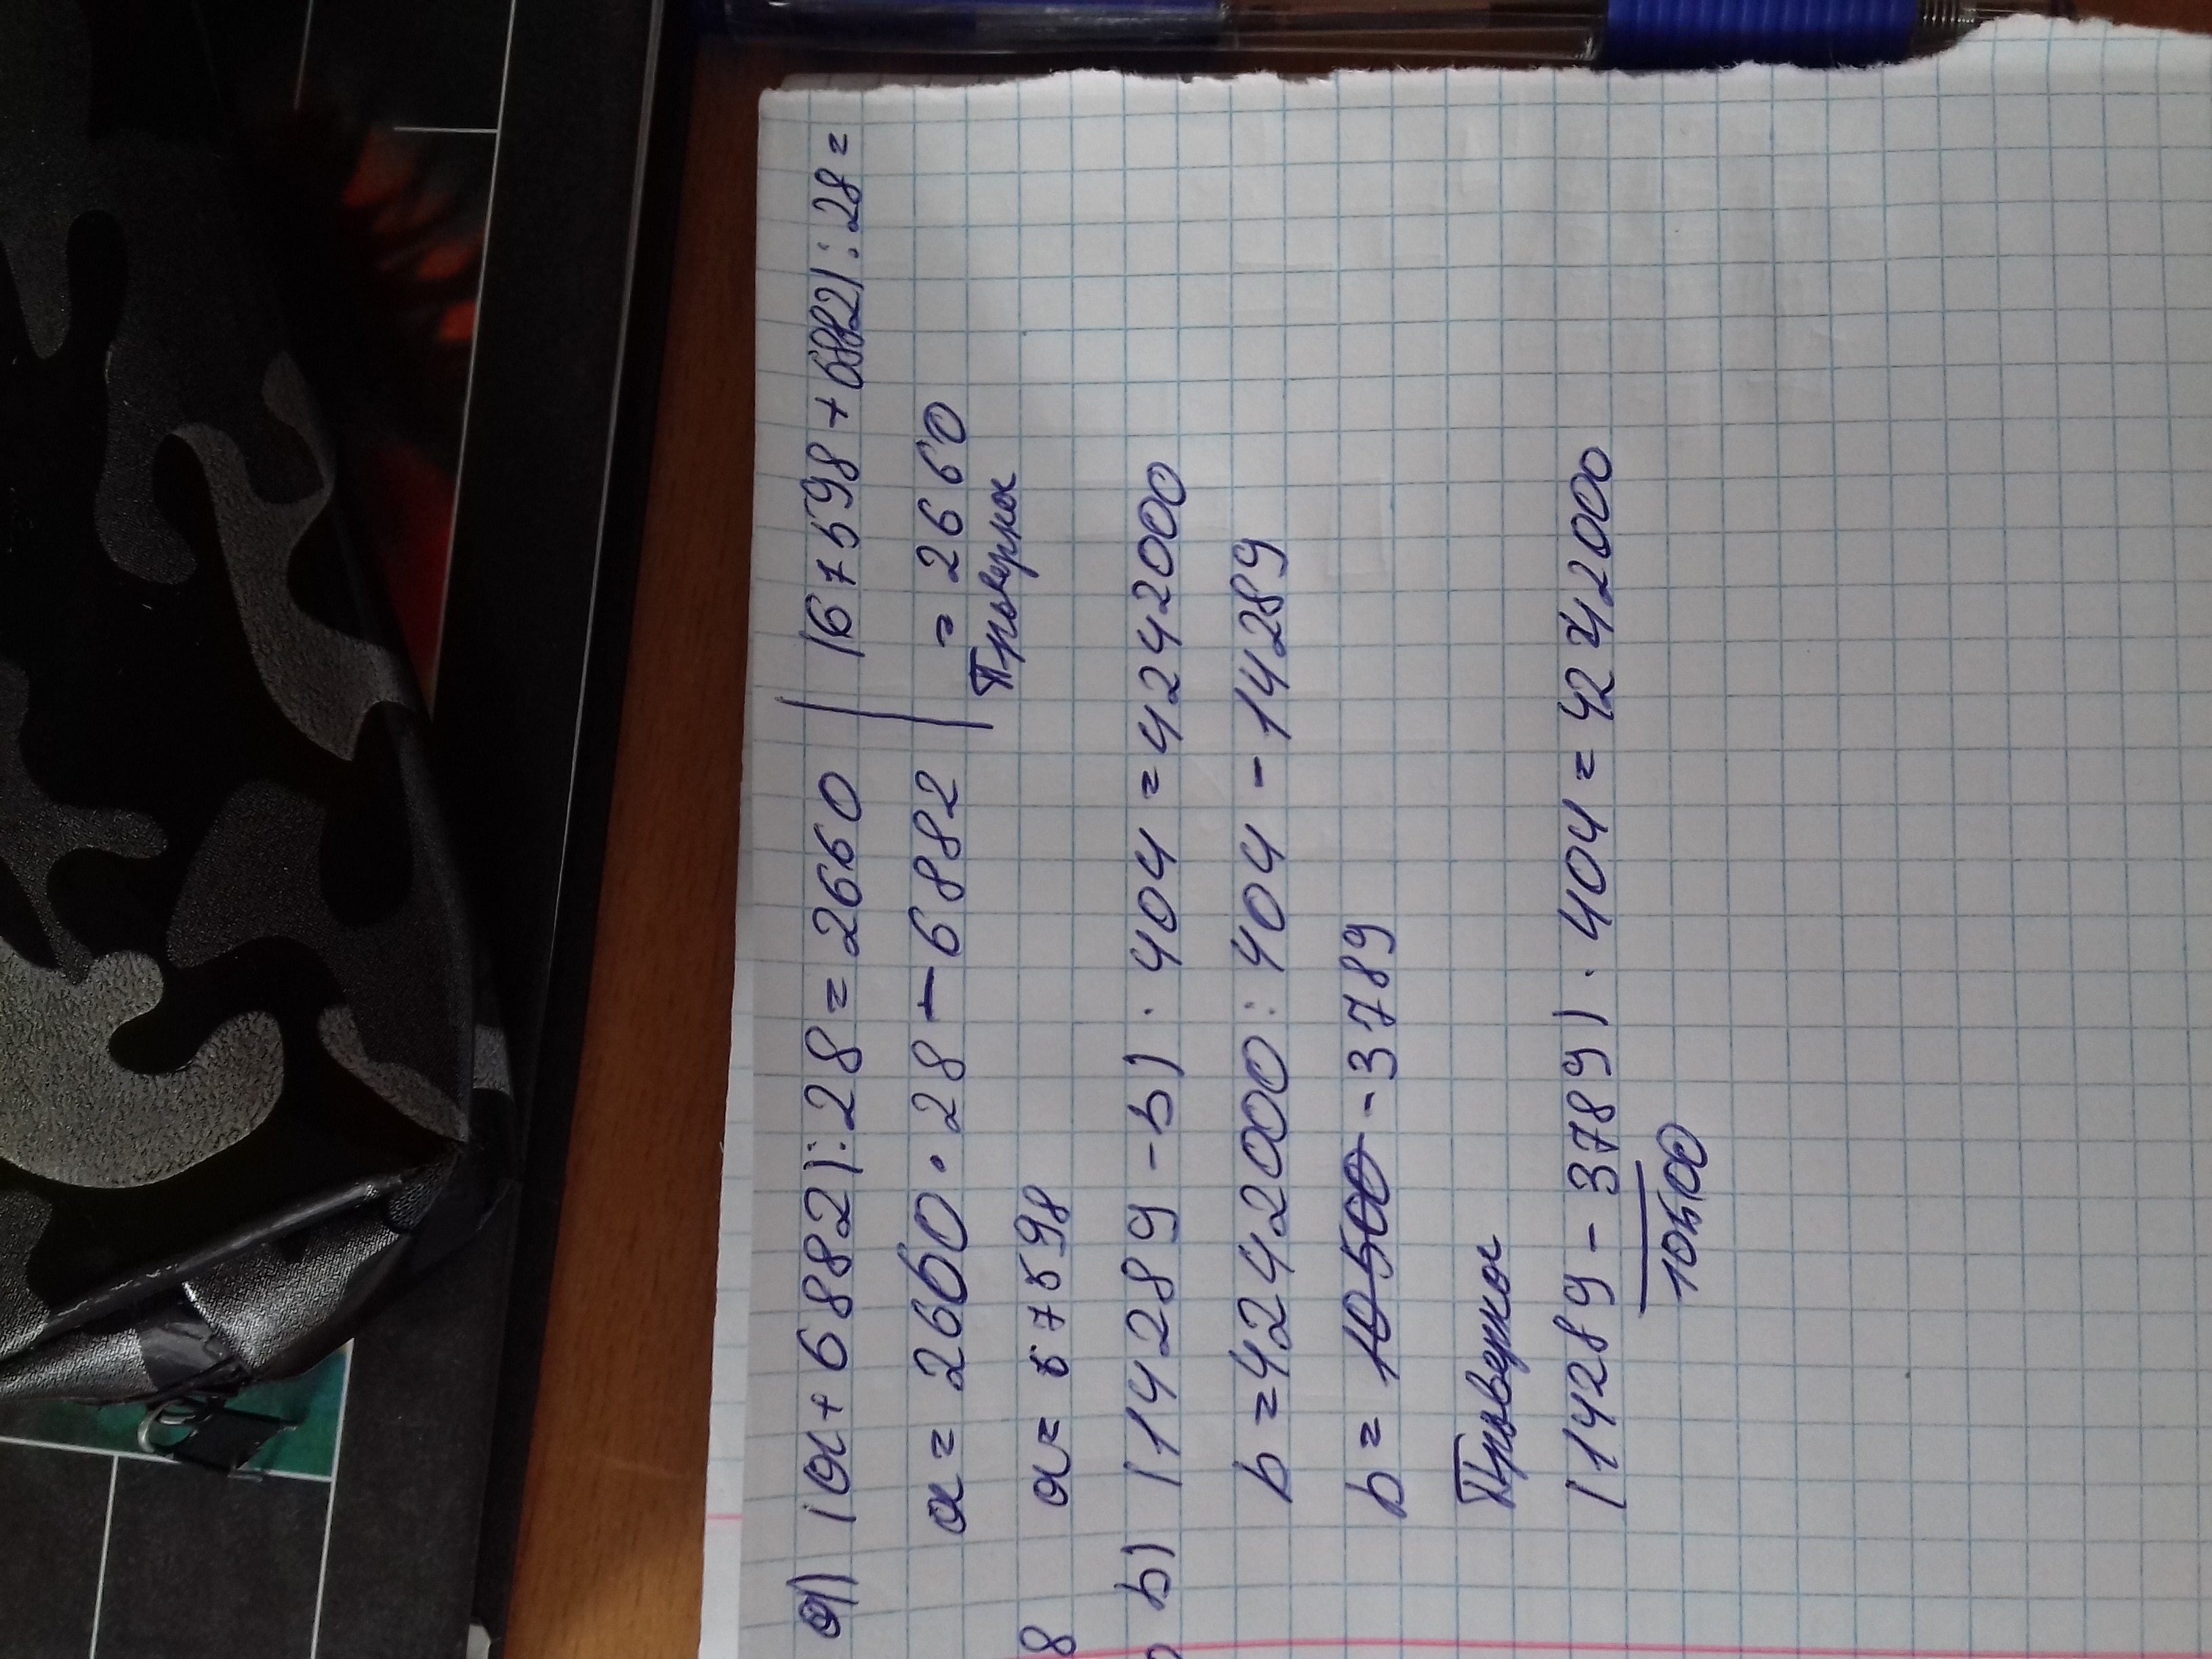 а) (а+6882):28=2660 | (67598+6882):28=
а=2660·28-6882 | =2660
Проверка
8 а=67598
b) (14289-b)·404=4242000
b=4242000:404-14289
b=10500-3789
Проверка
(14289-3789)·404=4242000
10500